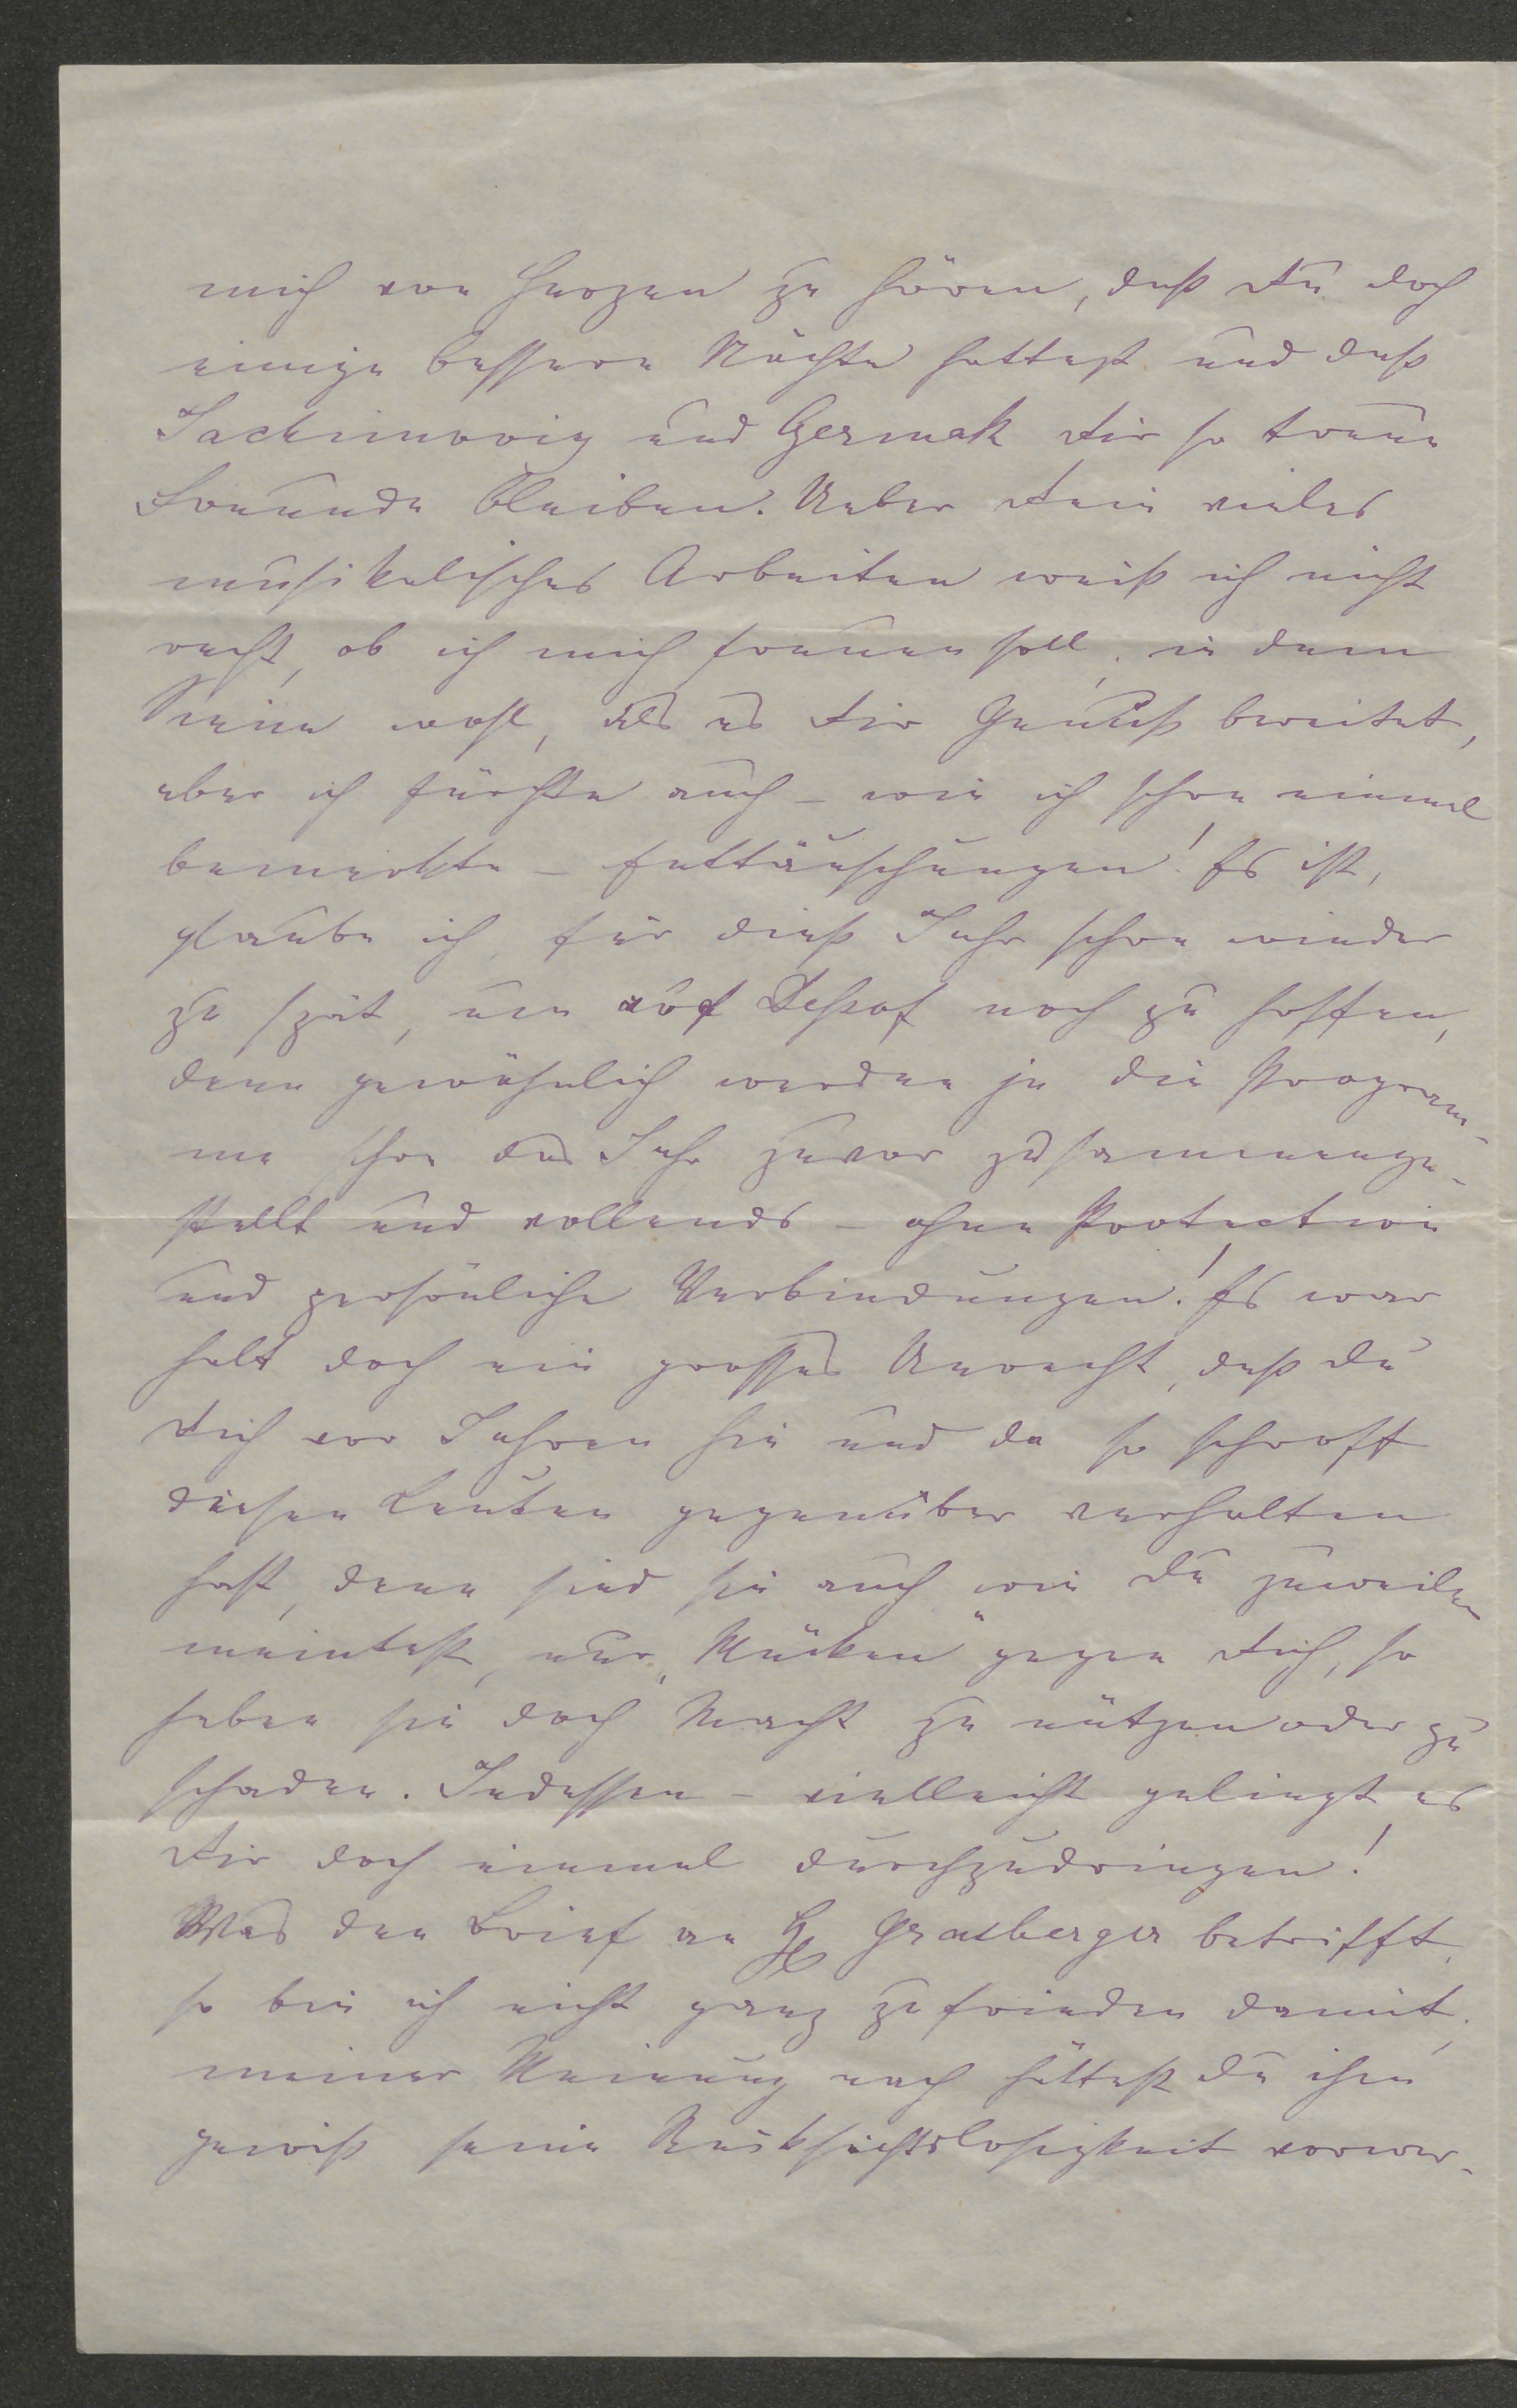 mich von Herzen zu hören, daß Du doch
einige bessere Nächte hattest und daß
Jachimovig und Germak Dir so treue
Freunde bleiben. Ueber Dein vieles
musikalisches Arbeiten weiß ich nicht
recht, ob ich mich freuen soll, in dem
Sinne wohl, als es Dir Genuß bereitet,
aber ich fürchte auch – wie ich schon einmal
bemerkte – Enttäuschungen! Es ist,
glaube ich, für dieß Jahr schon wieder
zu spät, um auf Dessof noch zu hoffen,
denn gewöhnlich werden ja die Program-
me schon das Jahr zuvor zusammenge-
stellt und vollends – ohne Protection
und persönliche Verbindungen! Es war
halt doch ein grosses Unrecht, daß Du
Dich vor Jahren hie und da so schroff
diesen Leuten gegenüber verhalten
hast, denn sind sie auch wie Du zuweilen
meintest, nur „Mücken“ gegen Dich, so
haben sie doch Macht zu nützen oder zu
schaden. Indessen – vielleicht gelingt es
Dir doch einmal durchzudringen!
Was den Brief an H Grasberger betrifft,
so bin ich nicht ganz zufrieden damit,
meiner Meinung nach hättest Du ihm
gewiß seine Rücksichtslosigkeit vorwer-